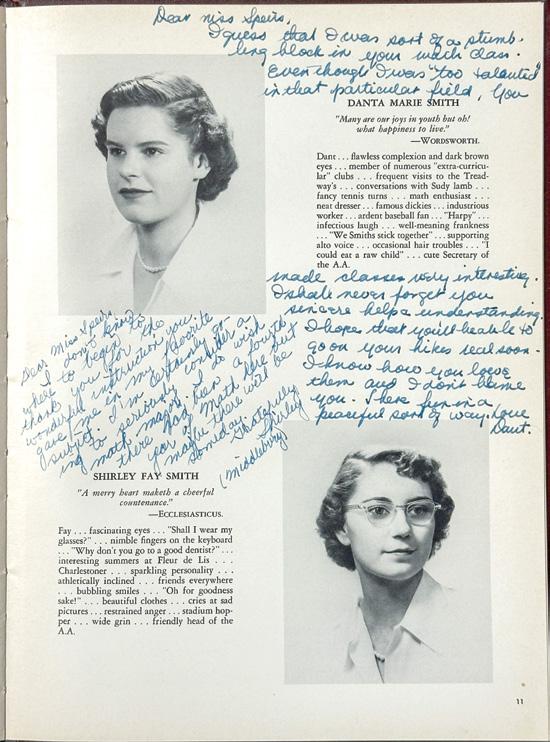 Dear Miss Speirs,
I guess that I was sort of a stumb-
ling block in your math class.
Even though I was "too talented"
in that particular field, you
DANTA MARIE SMITH
"Many are our joys in youth but oh!
what happiness to live."
—WORDSWORTH.
Dant . . . flawless complexion and dark brown
eyes . . . member of numerous "extra-curricu-
lar" clubs . . . frequent visits to the Tread-
way's . . . conversations with Sudy lamb . . .
fancy tennis turns . . . math enthusiast . . .
neat dresser . . . famous dickies . . . industrious
worker . . . ardent baseball fan . . . "Harpy" . . .
infectious laugh . . . well-meaning frankness
. . . "We Smiths stick together" . . . supporting
alto voice . . . occasional hair troubles . . . "I
could eat a raw child" . . . cute Secretary of
the A.A.
made classes very interesting.
I shall never forget your
sincere help & understanding.
I hope that you'll be able to
go on your hikes real soon.
I know how you love
them and I don't blame
you. There fun in a
peaceful sort of way. Love
Dant.
Dear Miss Speirs,
I don't know
where to begin to
thank you for the
wonderful instruction you
gave me in my favorite
subject. I'm certainly go-
ing to seriously consider a
math major. I do wish
there had been a fourth
year of math here but
maybe there will be
someday.
Shirley
(Middlebury)
SHIRLEY FAY SMITH
"A merry heart maketh a cheerful
countenance."
—ECCLESIASTICUS.
Fay . . . fascinating eyes . . . "Shall I wear my
glasses?" . . . nimble fingers on the keyboard
. . . "Why don't you go to a good dentist?" . . .
interesting summers at Fleur de Lis . . .
Charlestoner . . . sparkling personality . . .
athletically inclined . . . friends everywhere
. . . bubbling smiles . . . "Oh for goodness
sake!" . . . beautiful clothes . . . cries at sad
pictures . . . restrained anger . . . stadium hop-
per . . . wide grin . . . friendly head of the
A.A.
11